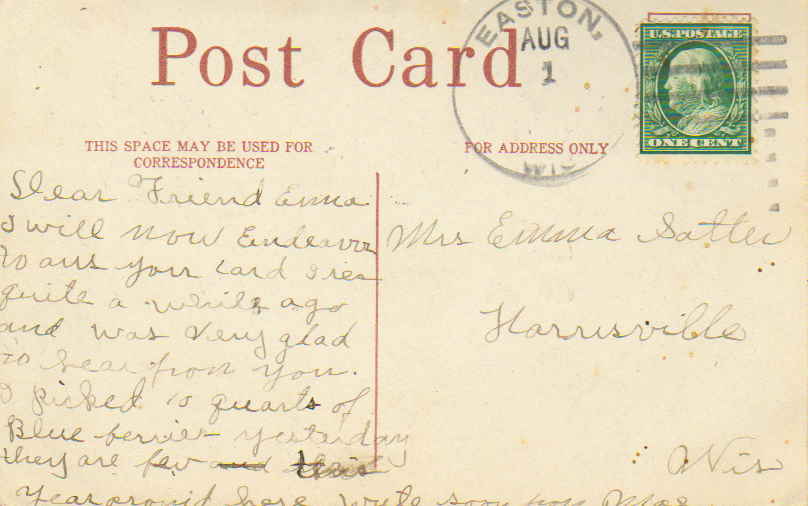 Post Card
EASTON,
AUG
1
WIS
U.S. POSTAGE
ONE CENT
THIS SPACE MAY BE USED FOR
CORRESPONDENCE
FOR ADDRESS ONLY
Dear Friend Emma
I will now Endeavor
to ans your card I rec
quite a while ago
and was very glad
to hear from you.
I picked 10 quarts of
Blue berries yesterday
they are few and this
year around here write soon from Mae
Mrs Emma Satter
Harrisville
Wis